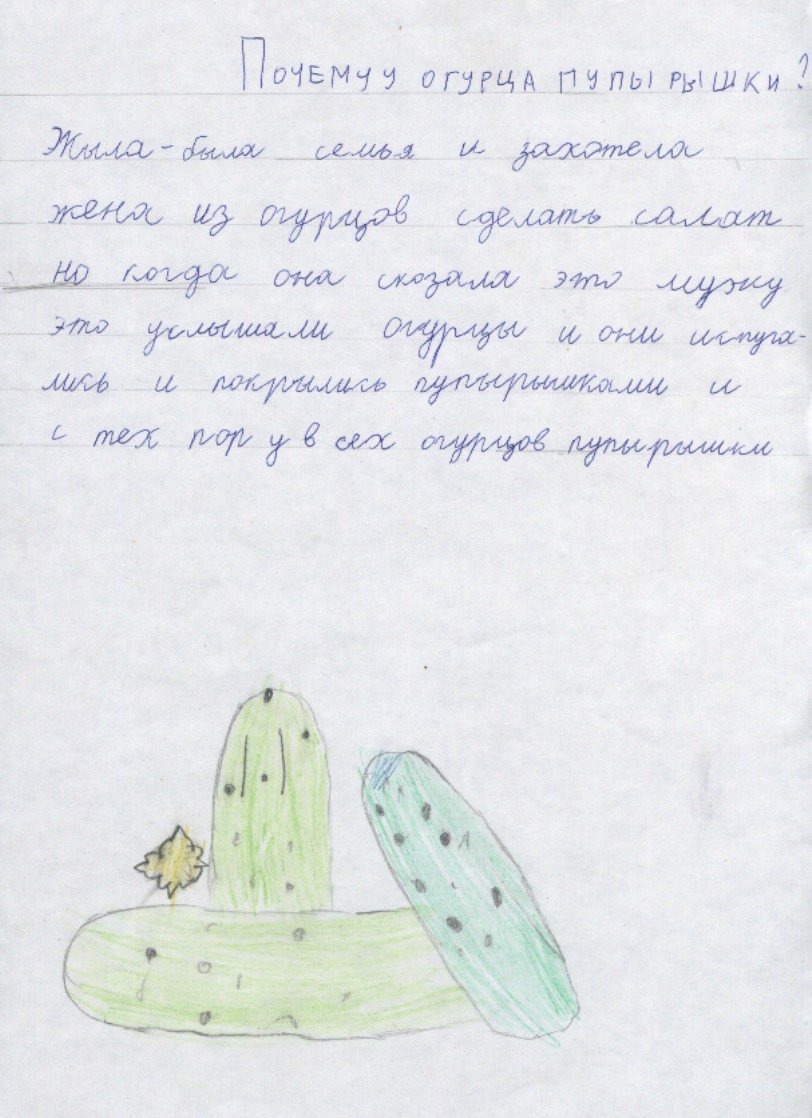 ПОЧЕМУ У ОГУРЦА ПУПЫРЫШКИ?
Жыла-была семья и захотела
жена из огурцов сделать салат
но когда она скозала это мужу
это услышали огурцы и они испуга-
лись и покрылись пупырышками и
с тех пор у всех огурцов пупырышки